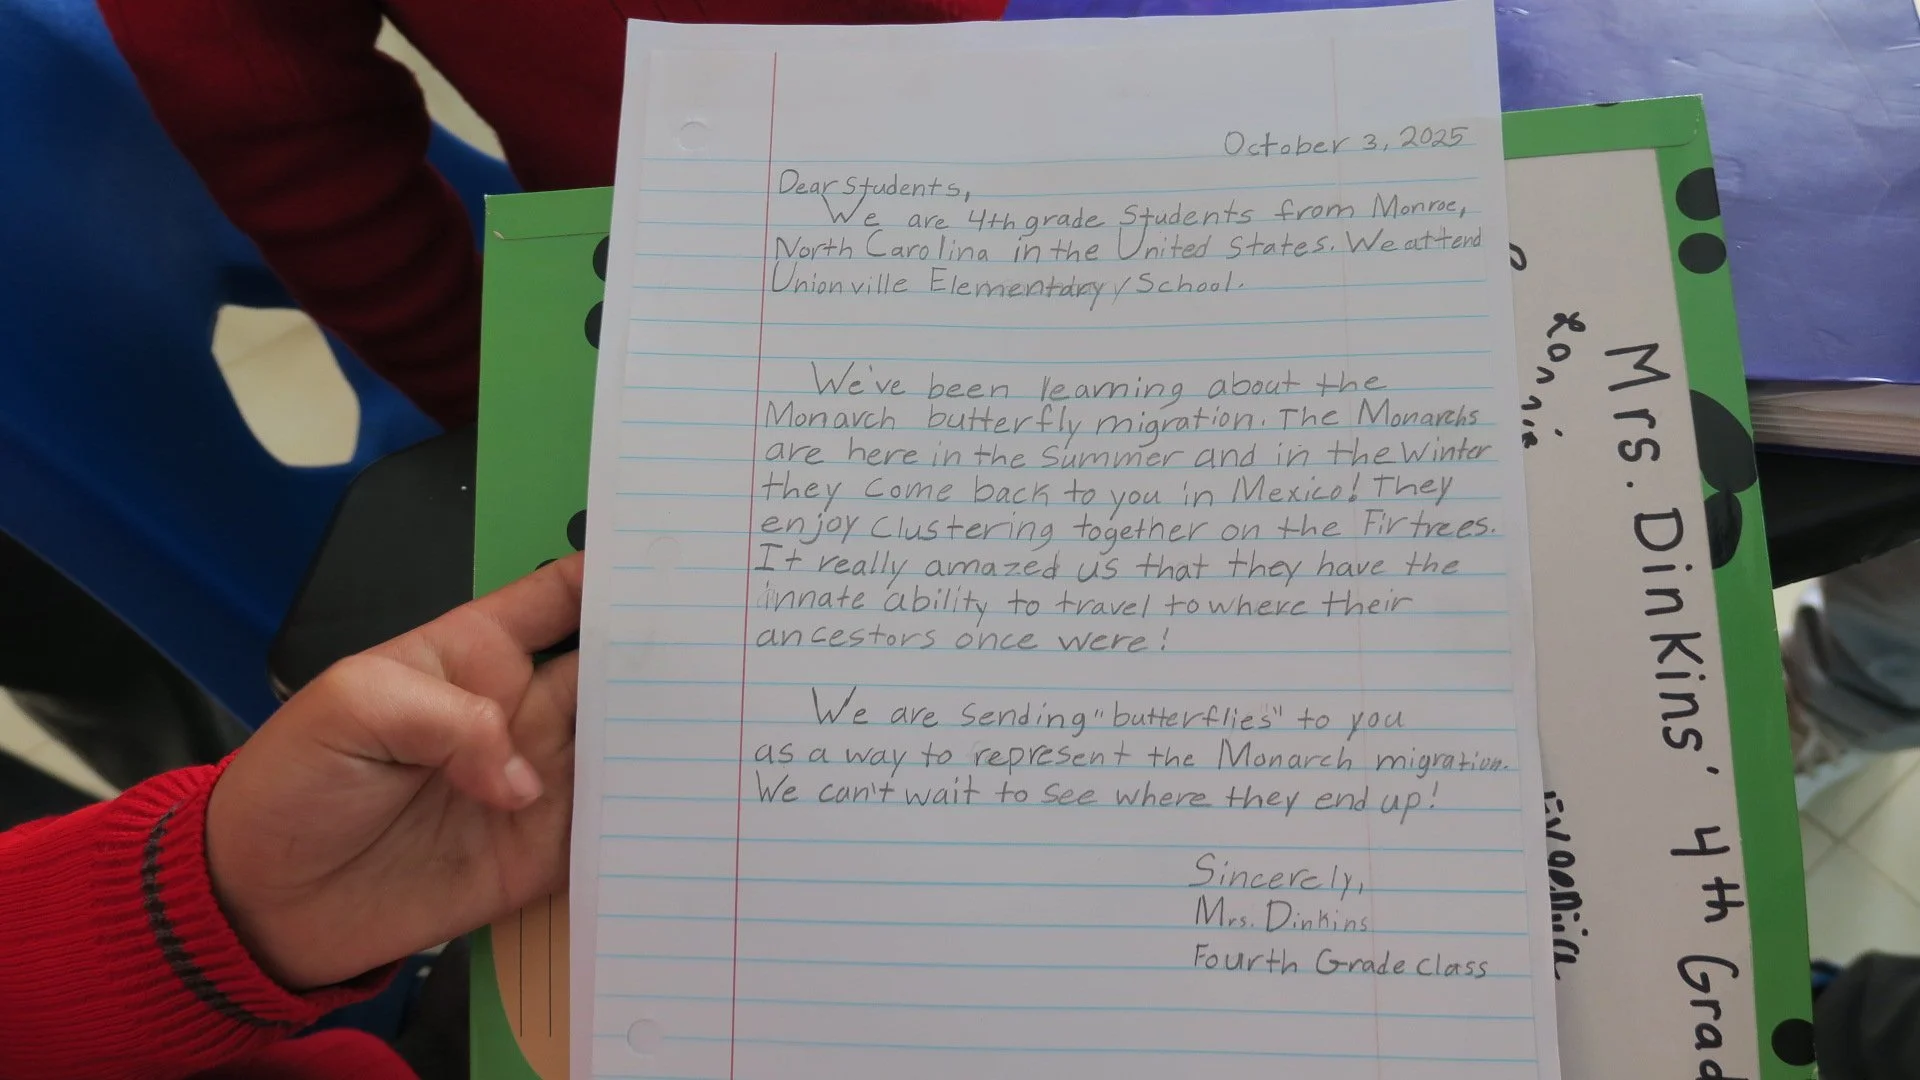 October 3, 2025
Dear Students,
We are 4th grade Students from Monroe,
North Carolina in the United States. We attend
Unionville Elementary School.
We've been learning about the
Monarch butterfly migration. The Monarchs
are here in the Summer and in the Winter
they come back to you in Mexico! They
enjoy clustering together on the Fir trees.
It really amazed us that they have the
innate ability to travel to where their
ancestors once were!
We are sending "butterflies" to you
as a way to represent the Monarch migration.
We can't wait to see where they end up!
Sincerely,
Mrs. Dinkins
Fourth Grade Class
Mrs. Dinkins' 4th Grad